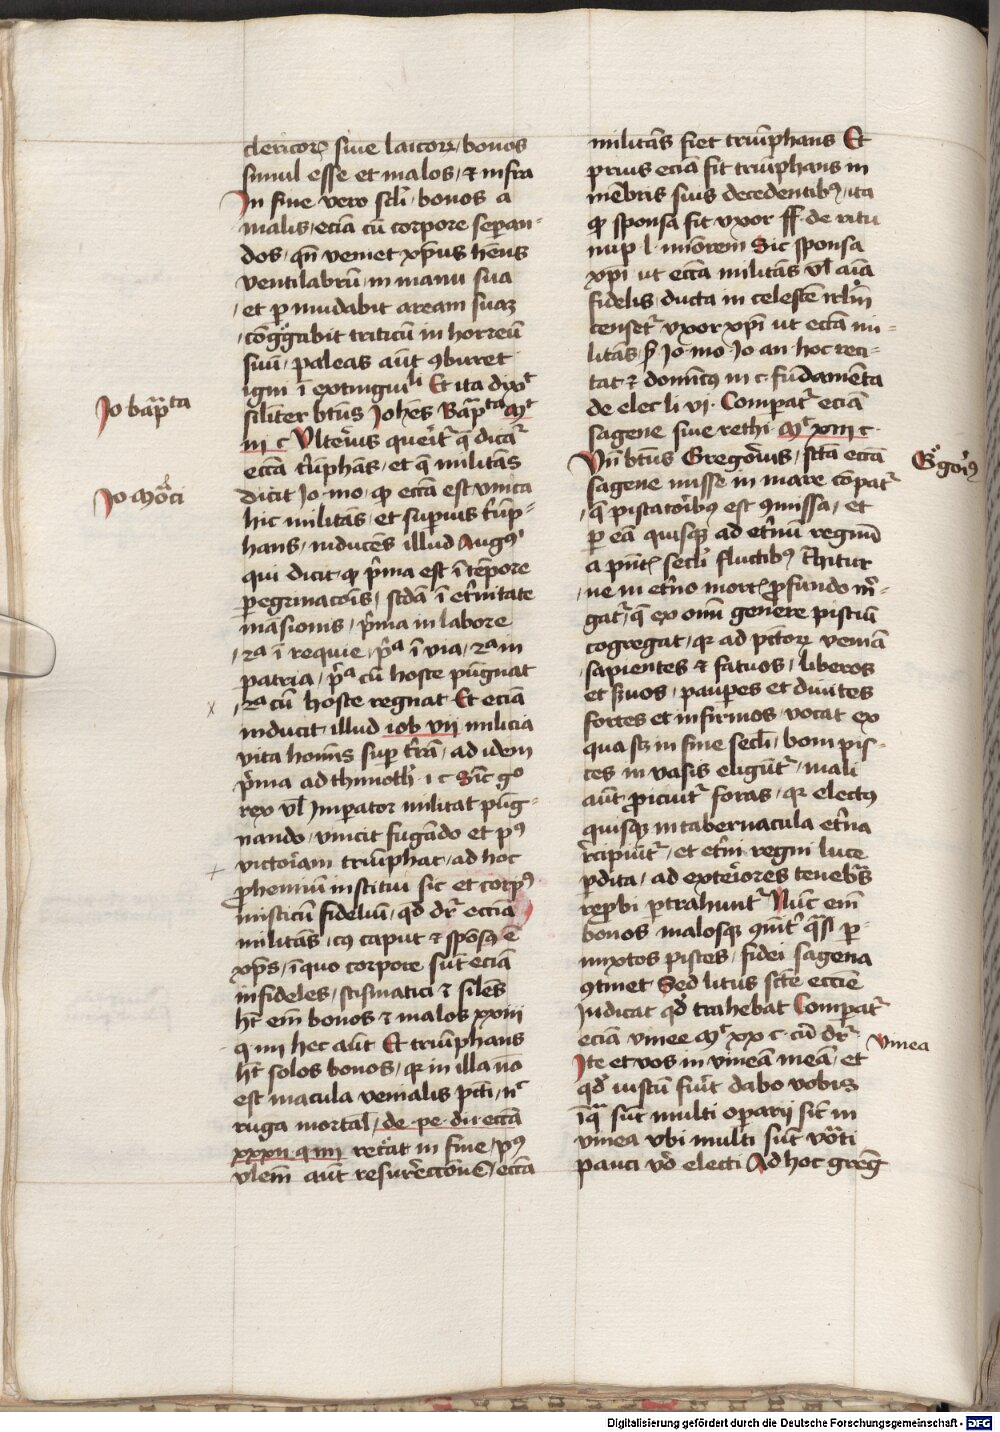 clericorꝝ siue laicorꝝ bonos
simul esse et malos / ⁊ infra
In fine vero scl̃i bonos a
malis / eciã cũ corpore separan-
dos / qñ veniet xp̃us hẽns
ventilabrũ in manu sua
/ et p mũdabit aream suaʒ
/ cõgʳgabit triticũ in horreũ
suũ / paleas aũt ꝯburet
igni ĩ extinguiˡⁱ Et ita dixᵗ
siliter btũs Johẽs Bapᵗᵃ Mᵗ
iii c Vlterius querit᷑ q̃ dicit᷑
eccã tũphãs / et q̃ militãs
dicit Jo mo ꝙ eccã est vnica
hic militãs / et supius tũp-
hans / inducẽs illud Augꝰⁱ
qui dicit ꝙ p̃ma est ĩ tẽpore
pegrinacõis / scdã ĩ et̃nitate
mãsionis / p̃ma in labore
/ 2ᵃ ĩ requie / p̃ᵃ ĩ via / 2ᵃ in
patria / p̃ᵃ cũ hoste pũgnat
/ 2ᵃ cũ hoste regnat Et eciã
inducit illud iob vii milicia
vita homĩs sup t̃rã / ad idem
p̃ma ad thimoth̃ i c Sic gᵒ
rex vl̃ Imperator militat pũg-
nando / vincit fugãdo et pꝰ
victoriam triũphat / ad hoc
phemiũ institui sic et corpꝰ
misticũ fideliũ / qd dr̃ eccia
militãs / cꝰ caput ⁊ spõsꝰ ẽ
xp̃s / ĩ quo corpore sũt eciã
infideles / scismatici ⁊ siles
hñt em̃ bonos ⁊ malos xxiii
q iiii hec aũt Et triũphans
hñt solos bonos / qꝛ in illa nõ
est macula venialis pcti / nᶜ
ruga mortal̃ / de pe di ii eccã
xxxii q iiii ret̃at in fine / pꝰ
vlem aũt resur̃eccõne / eccã
militãs fiet triũphans Et
prius eciã fit triũphans in
mẽbris suis decedentibꝰ / ita
ꝙ sponsa fit vxor ff de ritu
nup l minorem Sic sponsa
xp̃i ut eccã militãs vl̃ aĩa
fidelis ducta in celestẽ irl̃m
censet᷑ vxor xp̃i ut eccã mi-
litãs / ẜ Jo mo Jo an hoc reci-
tat ⁊ domicꝰ in c fũdamẽta
de elec li vi Comparat᷑ eciã
sagene siue rethi Mᵗ xiii c
Vñ btũs Gregorius / scta eccã
sagene misse in mare cõpat᷑
/ q̃ piscatoribꝰ est ꝯmissa / et
p eã quisqʒ ad et̃nũ regnũ
a pñti secli fluctibꝰ t̃hitur
/ ne in et̃no mortꝭ pfundo m̃-
gat᷑ / q̃ ex oĩ genere pisciũ
cogregat / qꝛ ad pctorꝝ veniã
/ sapientes ⁊ fatuos / liberos
et ẜuos / paupes et diuites
fortes et infirmos vocat ex
qua scʒ in fine secl̃i / boni pis-
ces in vasis eligũt᷑ / mali
aũt piciũt᷑ foras / qꝛ electꝰ
quisqʒ in tabernacula et̃na
r̃cipiũt᷑ / et et̃ni regni luce
pdita / ad exteriores tenebr̃s
reprobi ptrahunt᷑ Nũc em̃
bonos malosqʒ ꝯmit᷑ q̃si p
mixtos pisces / fidei sagena
ꝯtinet Sed litus scẽ eccie
iudicat qd̃ trahebat Comparat᷑
eciã vinee Mᵗ xx c cũ dr̃
Ite et vos in vineã meã / et
qd̃ iustũ fuit̃ dabo vobis
ĩ qᵃ sũt multi operarij sic̃ in
vinea vbi multi sũt vocati
pauci v̾o electi Ad hoc greg̃
Jo bapᵗᵃ
Jo Moᵃci
Gʳgoriꝰ
vinea
Digitalisierung gefördert durch die Deutsche Forschungsgemeinschaft - DFG